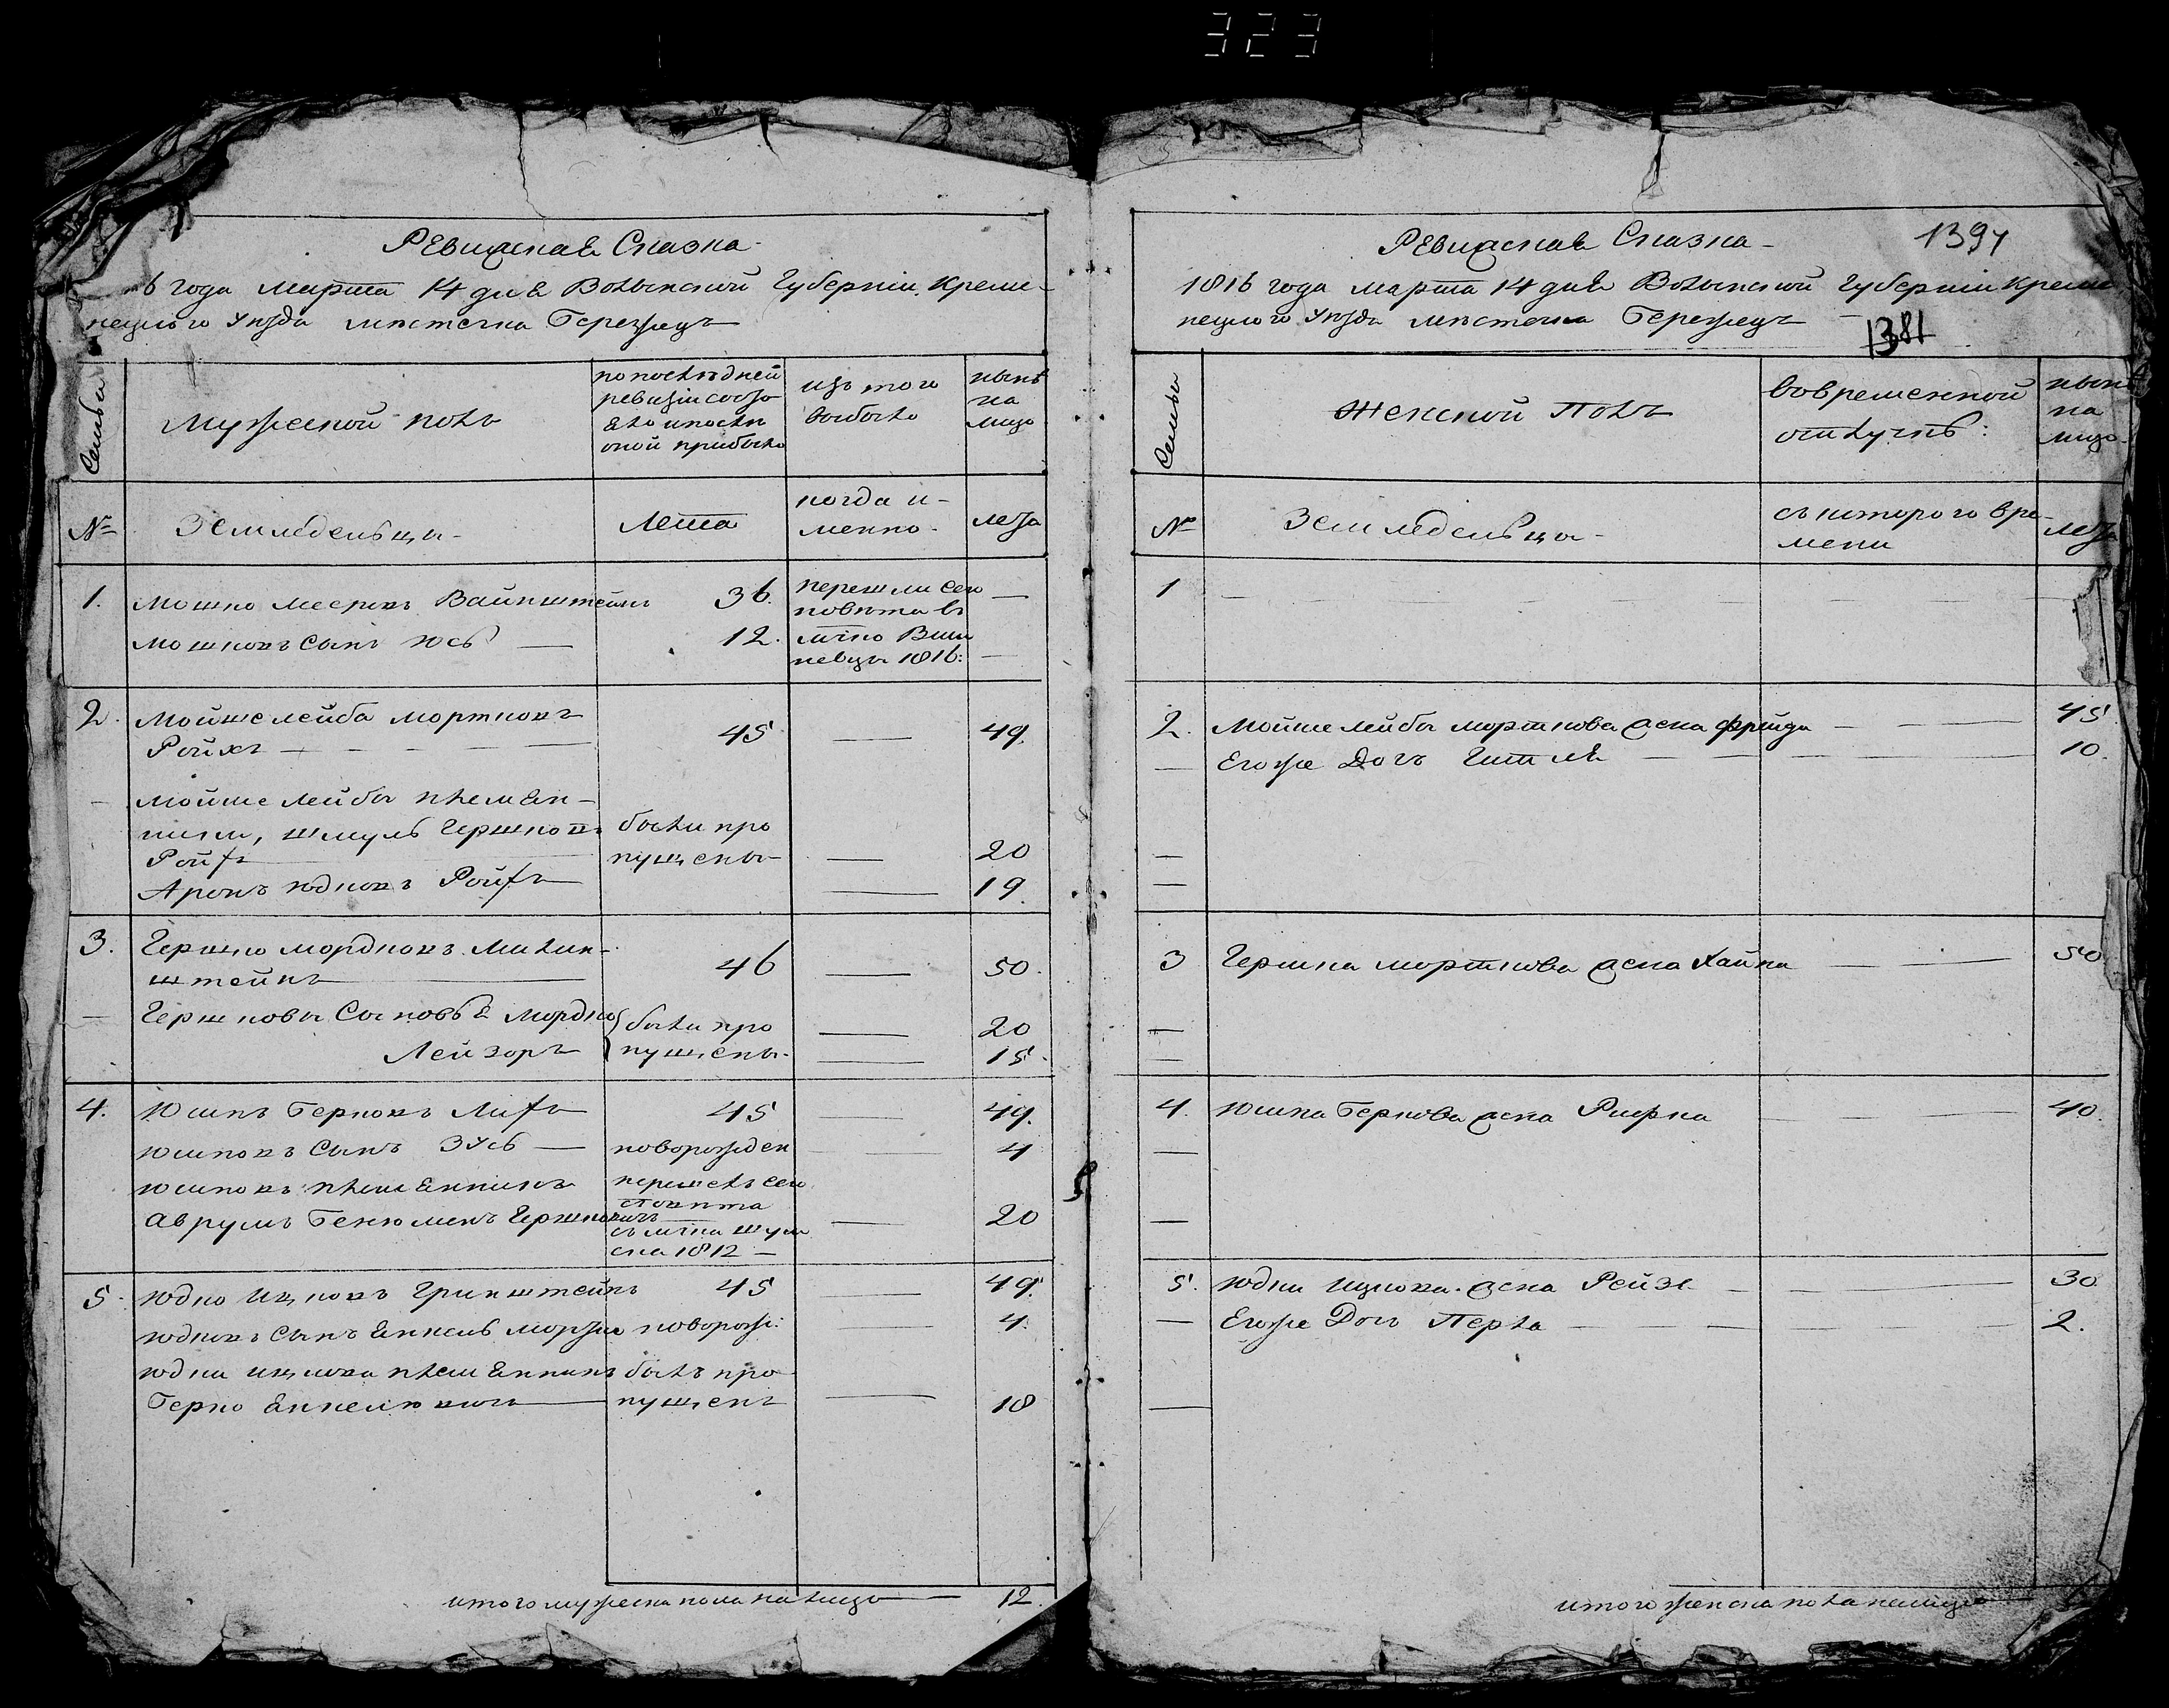 323
Ревижская Сказка
6 года Марта 14 дня Волынской Губернии Креме-
нецкого Уезда местечка Бережец
Семьи
Мужеской полъ
по последней
ревизии состо
яло и после
оной прибыло
изъ того
выбыло
ныне
на
лицо
№
Земледельцы
Лета
когда и-
менно
лета
1. Мошко Меерковъ Вайнштейнъ 36. перешли сего
повета въ
Мошковъ сынъ Юсь 12. мчко Виш
невцы 1816:
2. Мойше лейба Мортковъ
Ройхъ 45 49.
Мойше Лейбы племян-
ники, Шмуль Гершковъ были про
Ройхъ пущены 20
Аронъ Юдковъ Ройхъ 19.
3. Гершко Мордковъ Милин-
штейнъ 46 50.
Гершковы Сыновья Мордко были про 20
Лейзоръ пущены. 15.
4. Юшкъ Берковъ Лихъ 45 49.
Юшковъ Сынъ Зусь новорожден 4
Юшковъ племянникъ перешелъ сего
повета
Аврумъ Бенюменъ Гершковичъ 20
съ мчка Шум
ска 1812
5. Юдко Ицковъ Гринштейнъ 45 49.
Юдковъ Сынъ Янкель Моржко новорож: 4.
Юдки Ицкова племянникъ былъ про
Берко Янкелювичъ пущенъ 18
итого мужеска пола на лицо 12.
Ревижская Сказка
1394
1816 года Марта 14 дня Волынской Губернии Креме
нецкого Уезда местечка Бережецъ
1381
Семьи
Женской Полъ
во временной
отлучке:
ныне
на
лицо
№
Земледельцы
съ которого вре-
мени
лета
1
2. Мойше лейбы Морткова жена Фрейда 45
Егоже Дочъ Гитля 10.
3 Гершка Морткова жена Хайка 50
4. Юшка Беркова жена Рифка 40.
5. Юдки Ицкова жена Рейзя 30
Егоже Дочъ Перла 2.
итого женска пола налицо